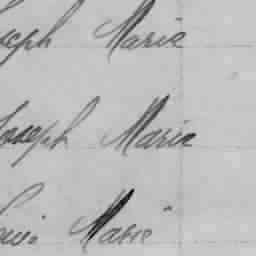 Joseph Marie
Joseph Marie
Louis Marie